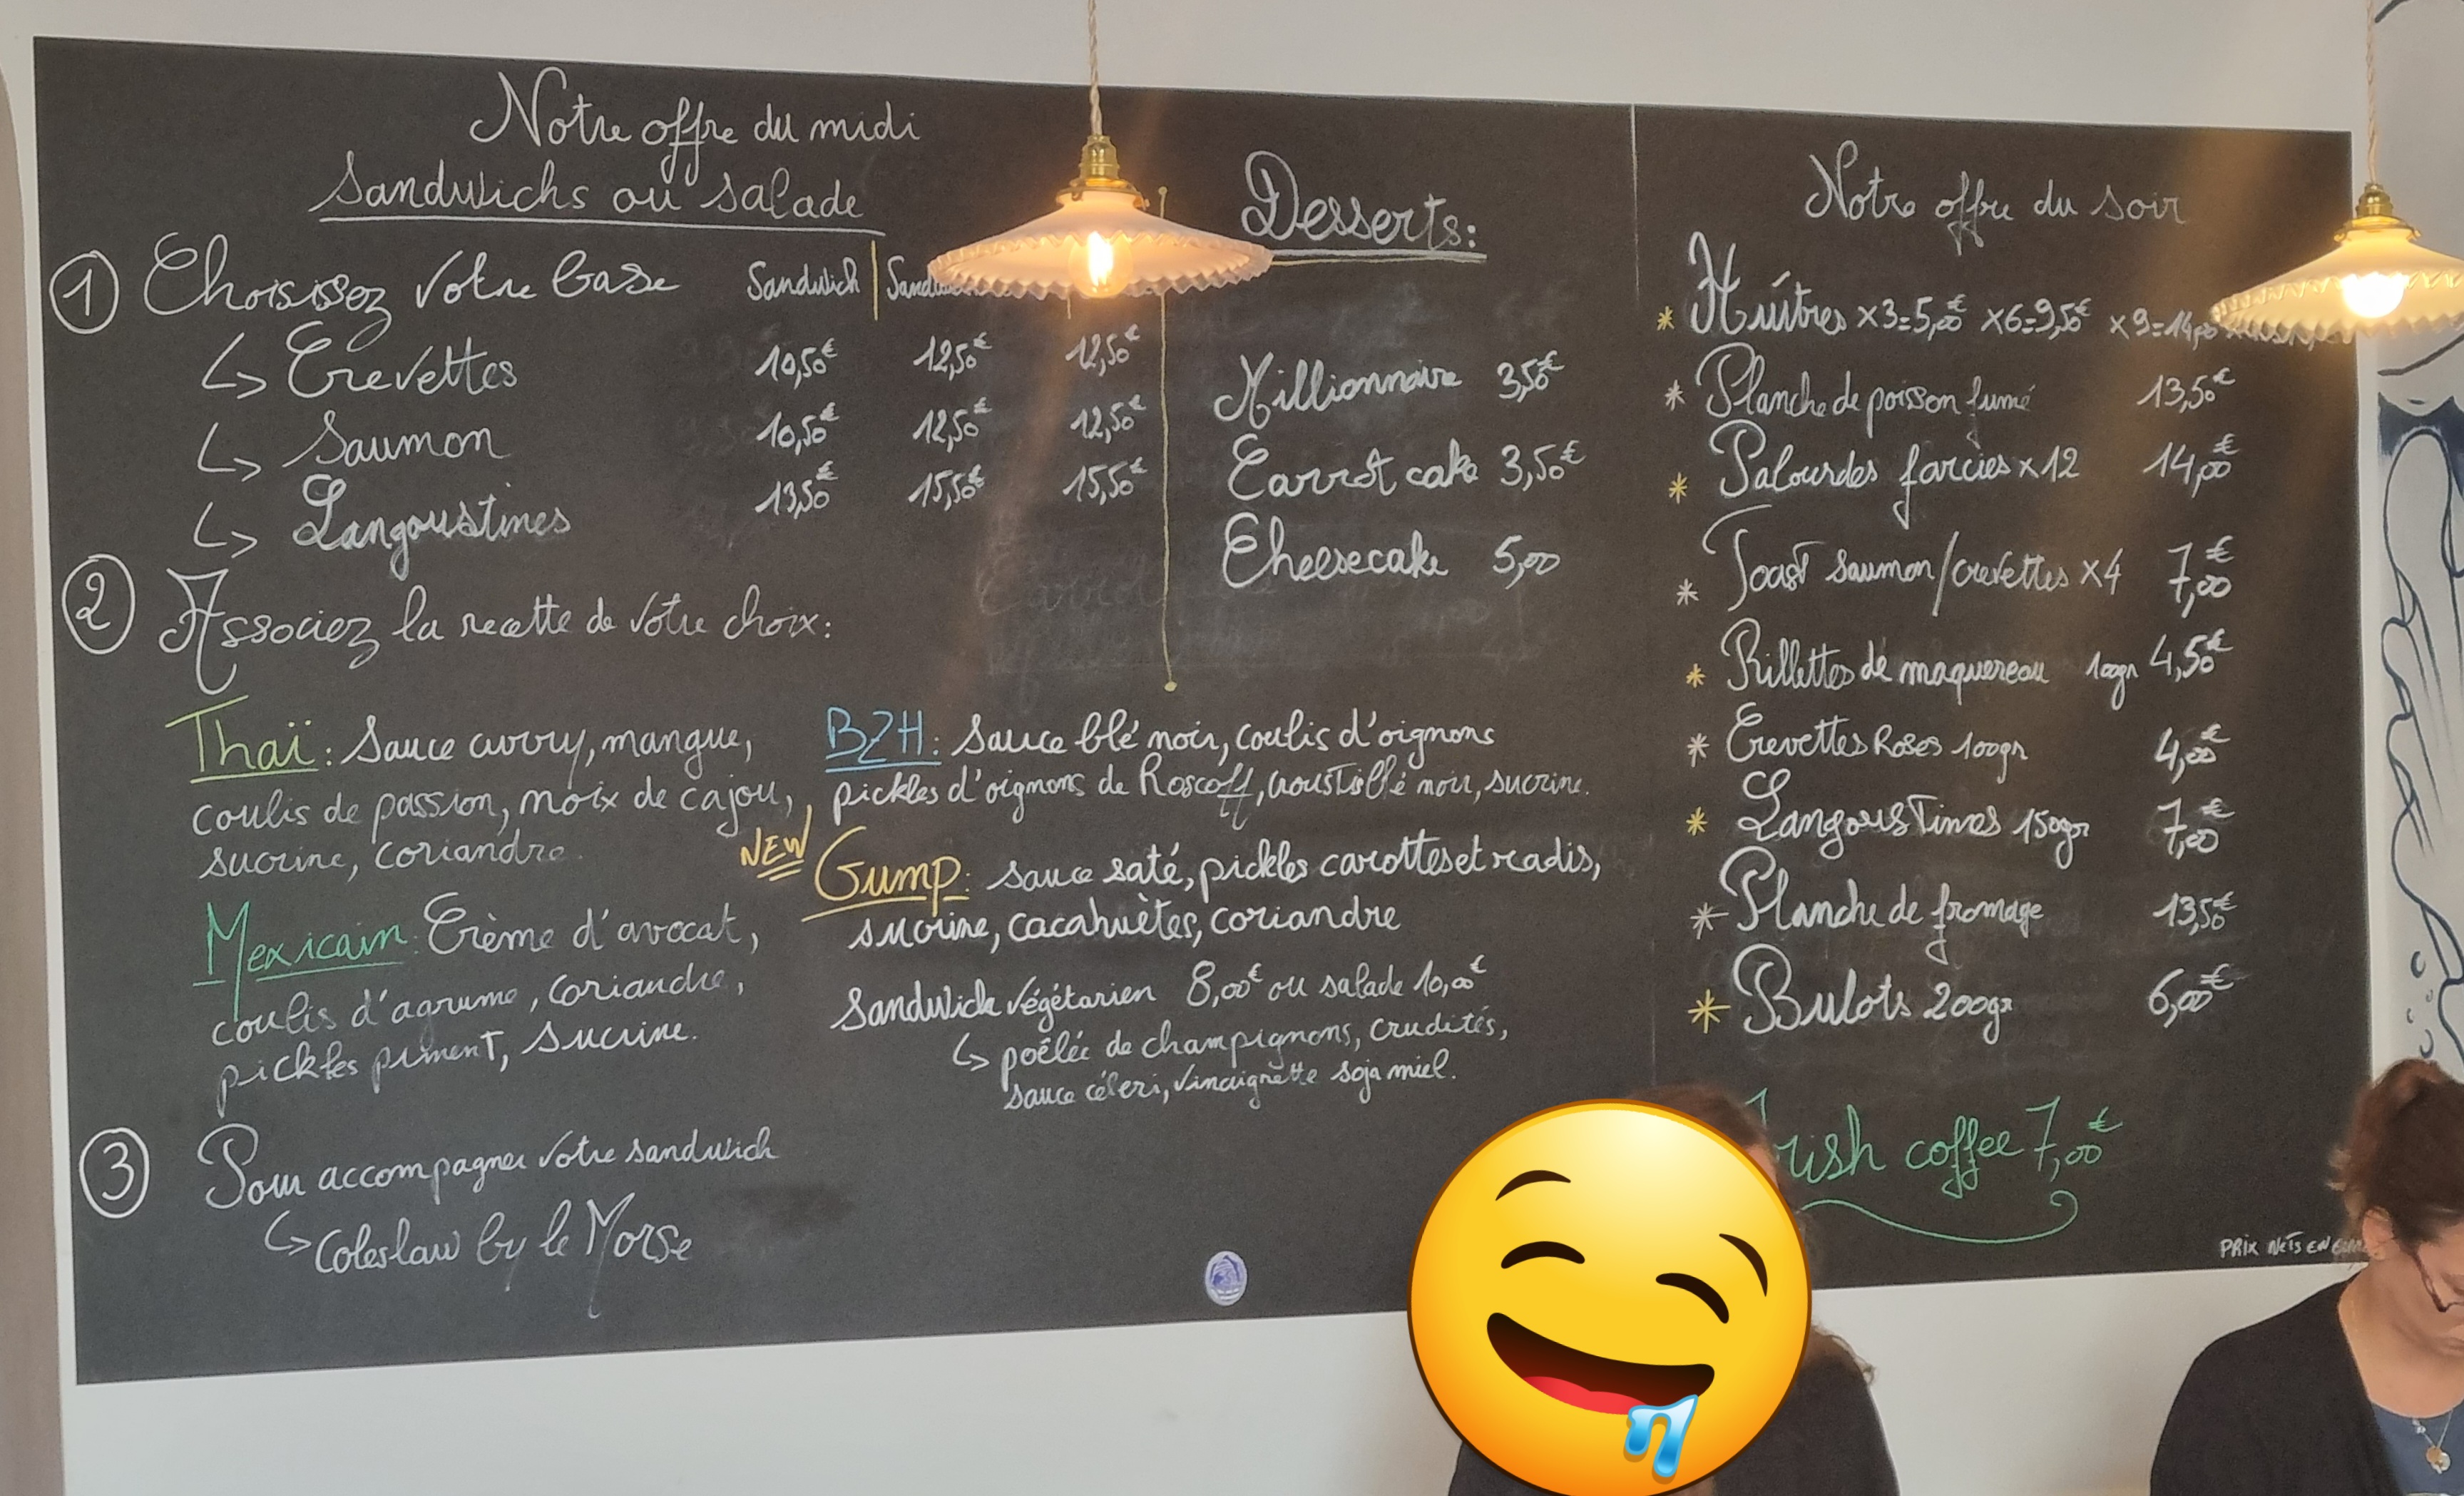 Notre offre du midi
Sandwichs ou salade
① Choisissez votre base Sandwich
↳ Crevettes 10,50€ 12,50€ 12,50€
↳ Saumon 10,50€ 12,50€ 12,50€
↳ Langoustines 13,50€ 15,50€ 15,50€
② Associez la recette de votre choix:
Thaï: Sauce curry, mangue,
coulis de passion, noix de cajou,
sucrine, coriandre.
Mexicain: Crème d'avocat,
coulis d'agrume, coriandre,
pickles piment, sucrine.
B2H: Sauce blé noir, coulis d'oignons
pickles d'oignons de Roscoff, croustiblé noir, sucrine.
NEW Gump: sauce saté, pickles carottes et radis,
sucrine, cacahuètes, coriandre
Sandwich végétarien 8,00€ ou salade 10,00€
↳ poêlée de champignons, crudités,
sauce céleri, vinaigrette soja miel.
③ Pour accompagner votre sandwich
↳ Coleslaw by le Morse
Desserts:
Millionnaire 3,50€
Carrot cake 3,50€
Cheesecake 5,00
Notre offre du soir
* Huîtres x3=5,00€ x6=9,50€ x9=14,00
* Planche de poisson fumé 13,50€
* Palourdes farcies x12 14,00€
* Toast saumon/crevettes x4 7,00€
* Rillettes de maquereau 100gr 4,50€
* Crevettes Roses 100gr 4,00€
* Langoustines 150gr 7,00€
* Planche de fromage 13,50€
* Bulots 200gr 6,00€
Irish coffee 7,00€
PRIX NETS EN